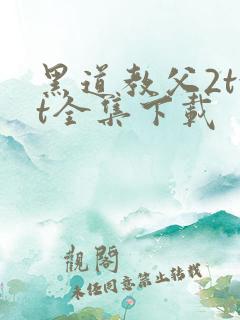 黑道教父2t
t全集下载
觀閣
未经同意禁止转载